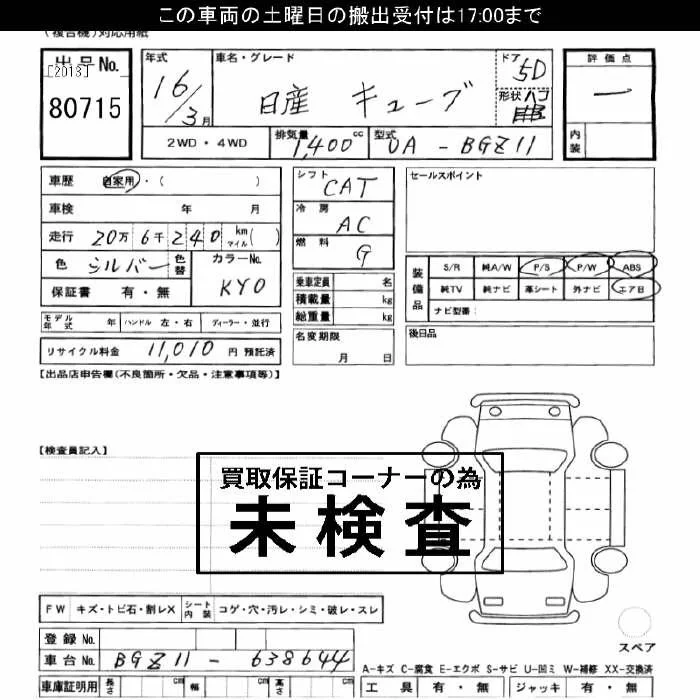 この車両の土曜日の搬出受付は17:00まで
(複合機)対応用紙
出品No.
[2013]
80715
年式
16/3月
車名・グレード
日産 キューブ
ドア
5D
形状 ハコ
評価点
一
内装
2WD・4WD
排気量 1,400 cc
型式 UA-BGZ11
車歴 自家用・( )
車検 年 月
走行 20万6千240 km マイル( )
色 シルバー 色替
カラーNo. KY0
保証書 有・無
モデル年式 年 ハンドル 左・右 ディーラー・並行
リサイクル料金 11,010 円 預託済
シフト CAT
冷房 AC
燃料 G
乗車定員 名
積載量 kg
総重量 kg
名変期限
月 日
セールスポイント
装備品
S/R 純A/W P/S P/W ABS
純TV 純ナビ 革シート 外ナビ エアB
ナビ型番:
後日品
【出品店申告欄(不良箇所・欠品・注意事項等)】
【検査員記入】
買取保証コーナーの為
未検査
FW キズ・トビ石・割レX シート内装 コゲ・穴・汚レ・シミ・破レ・スレ
登録No.
車台No. BGZ11-638644
スペア
A-キズ C-腐食 E-エクボ S-サビ U-凹ミ W-補修 XX-交換済
車庫証明用 長さ cm 幅 cm 高さ cm
工具 有・無 ジャッキ 有・無